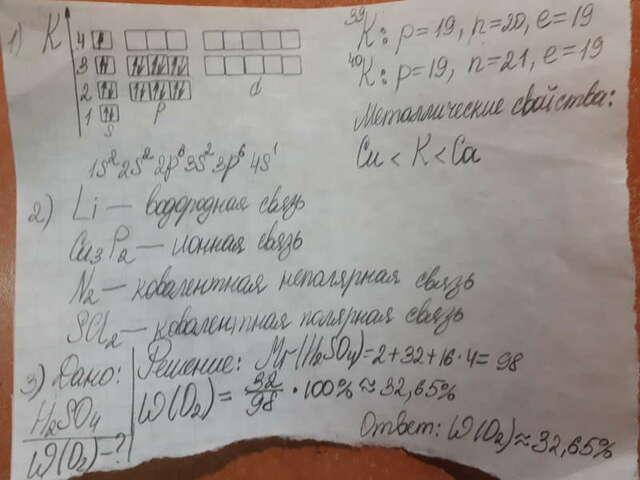 1) K
4
3
2
1
s p d
1s²2s²2p⁶3s²3p⁶4s¹
³⁹K: p=19, n=20, e=19
⁴⁰K: p=19, n=21, e=19
Металлические свойства:
Cu < K < Ca
2) Li — водородная связь
Cu₃P₂ — ионная связь
N₂ — ковалентная неполярная связь
SCl₂ — ковалентная полярная связь
3) Дано:
H₂SO₄
W(O₂) – ?
Решение: Mr(H₂SO₄)=2+32+16·4=98
W(O₂) = 32/98 · 100% ≈ 32,65%
Ответ: W(O₂)≈32,65%